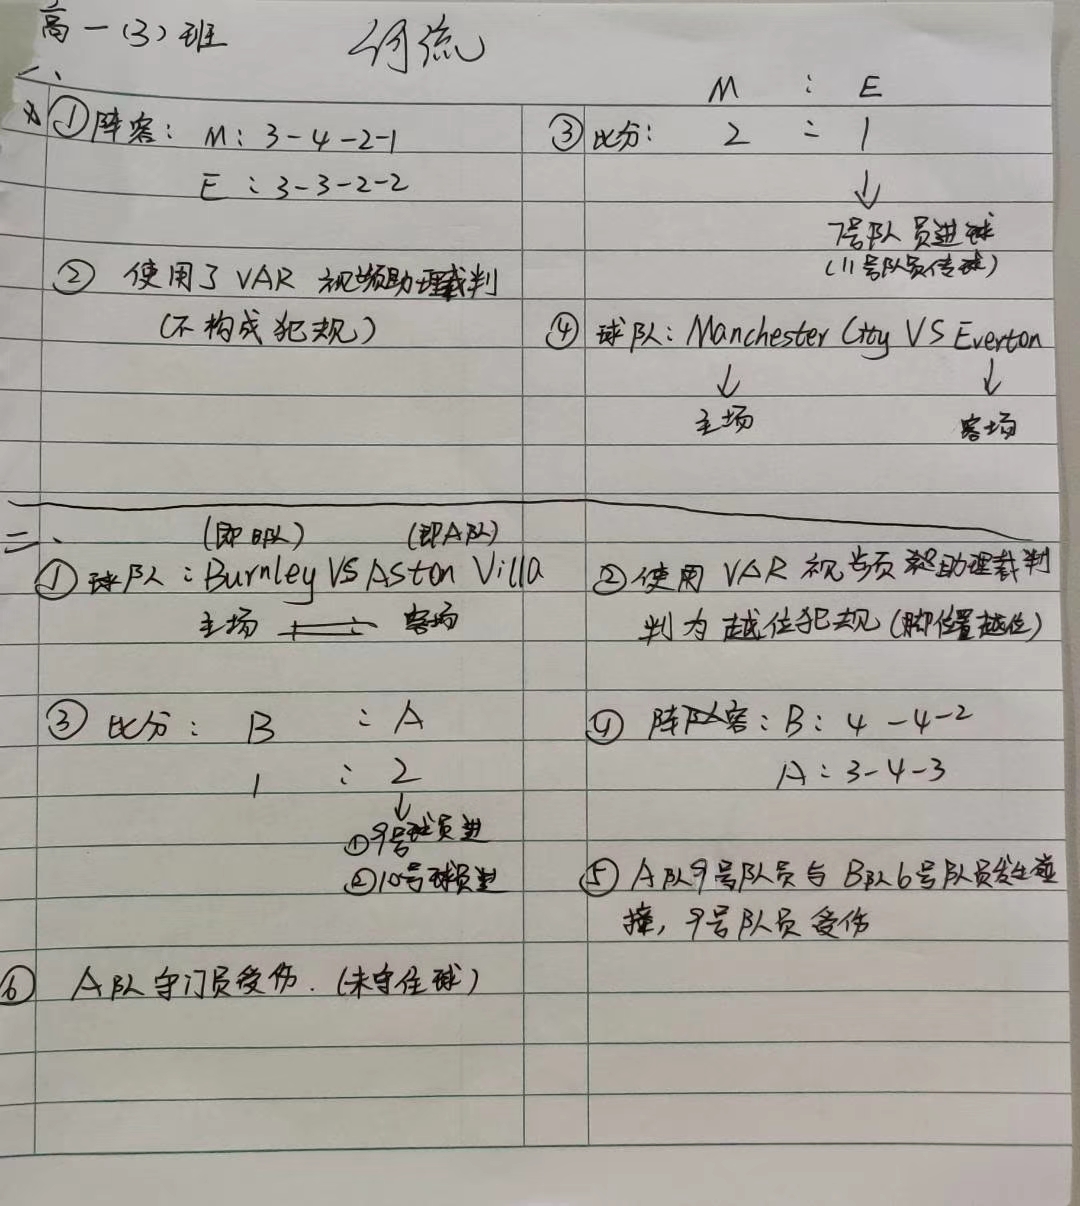 高一(3)班 何流
一、
①阵容: M: 3-4-2-1
E: 3-3-2-2
② 使用了 VAR 视频助理裁判
(不构成犯规)
M : E
③ 比分: 2 : 1
↓
7号队员进球
(11号队员传球)
④ 球队: Manchester City VS Everton
↓ ↓
主场 客场
二、
(即B队) (即A队)
① 球队: Burnley VS Aston Villa
主场 客场
② 使用 VAR 视频助理裁判
判为越位犯规(脚位置越位)
③ 比分: B : A
1 : 2
↓
①9号球员进
②10号球员进
④ 阵容: B: 4-4-2
A: 3-4-3
⑤ A队9号队员与B队6号队员发生碰
撞, 9号队员受伤
⑥ A队守门员受伤. (未守住球)